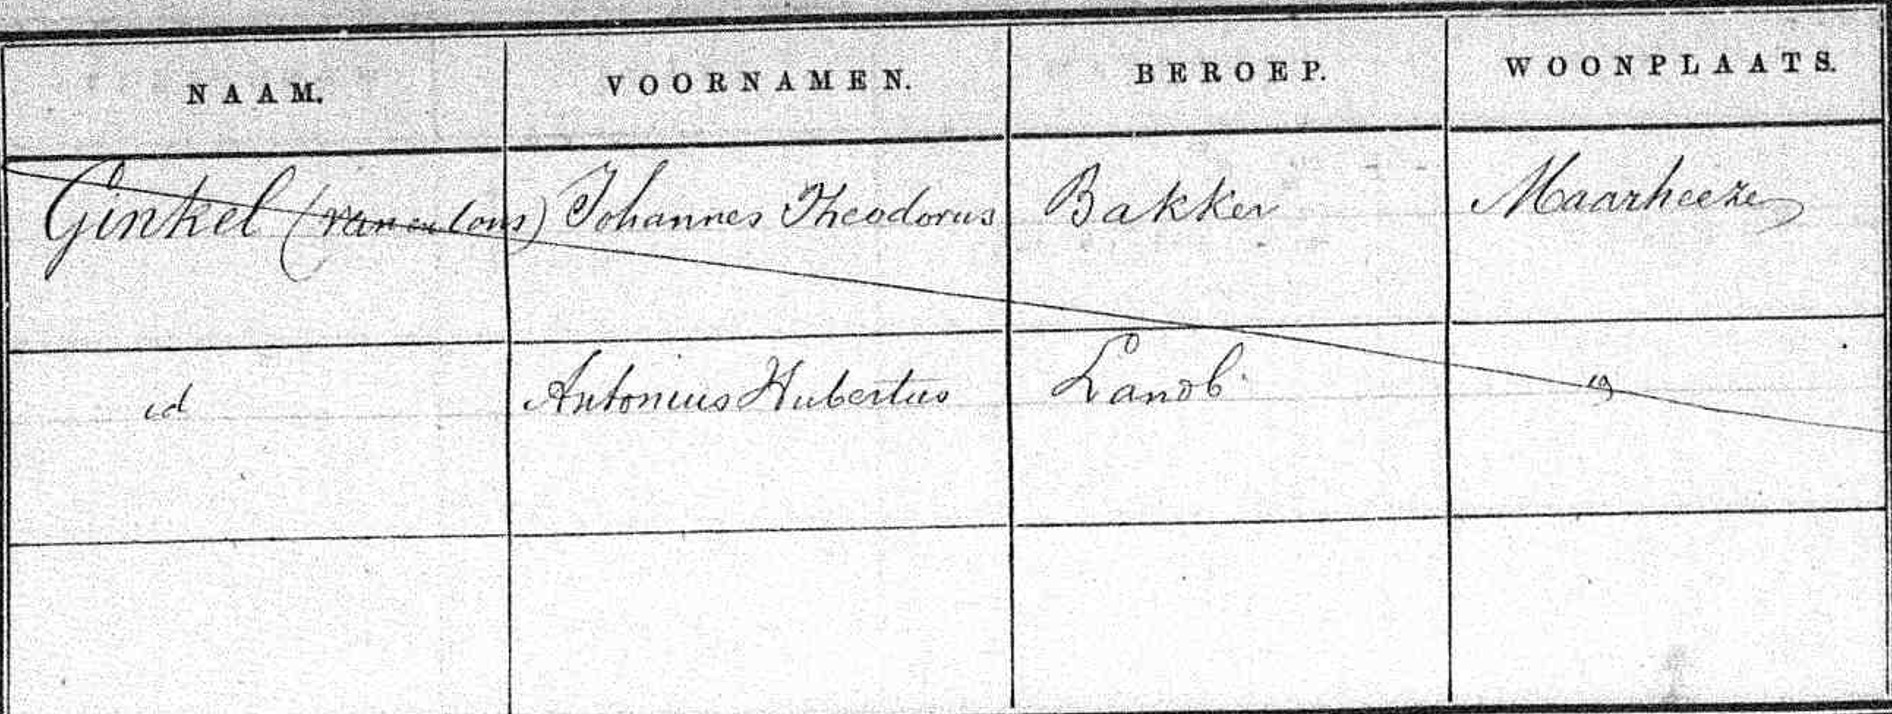 NAAM. VOORNAMEN. BEROEP. WOONPLAATS.
Ginkel (van en cons) Johannes Theodorus Bakker Maarheeze
id Antonius Hubertus Landb.